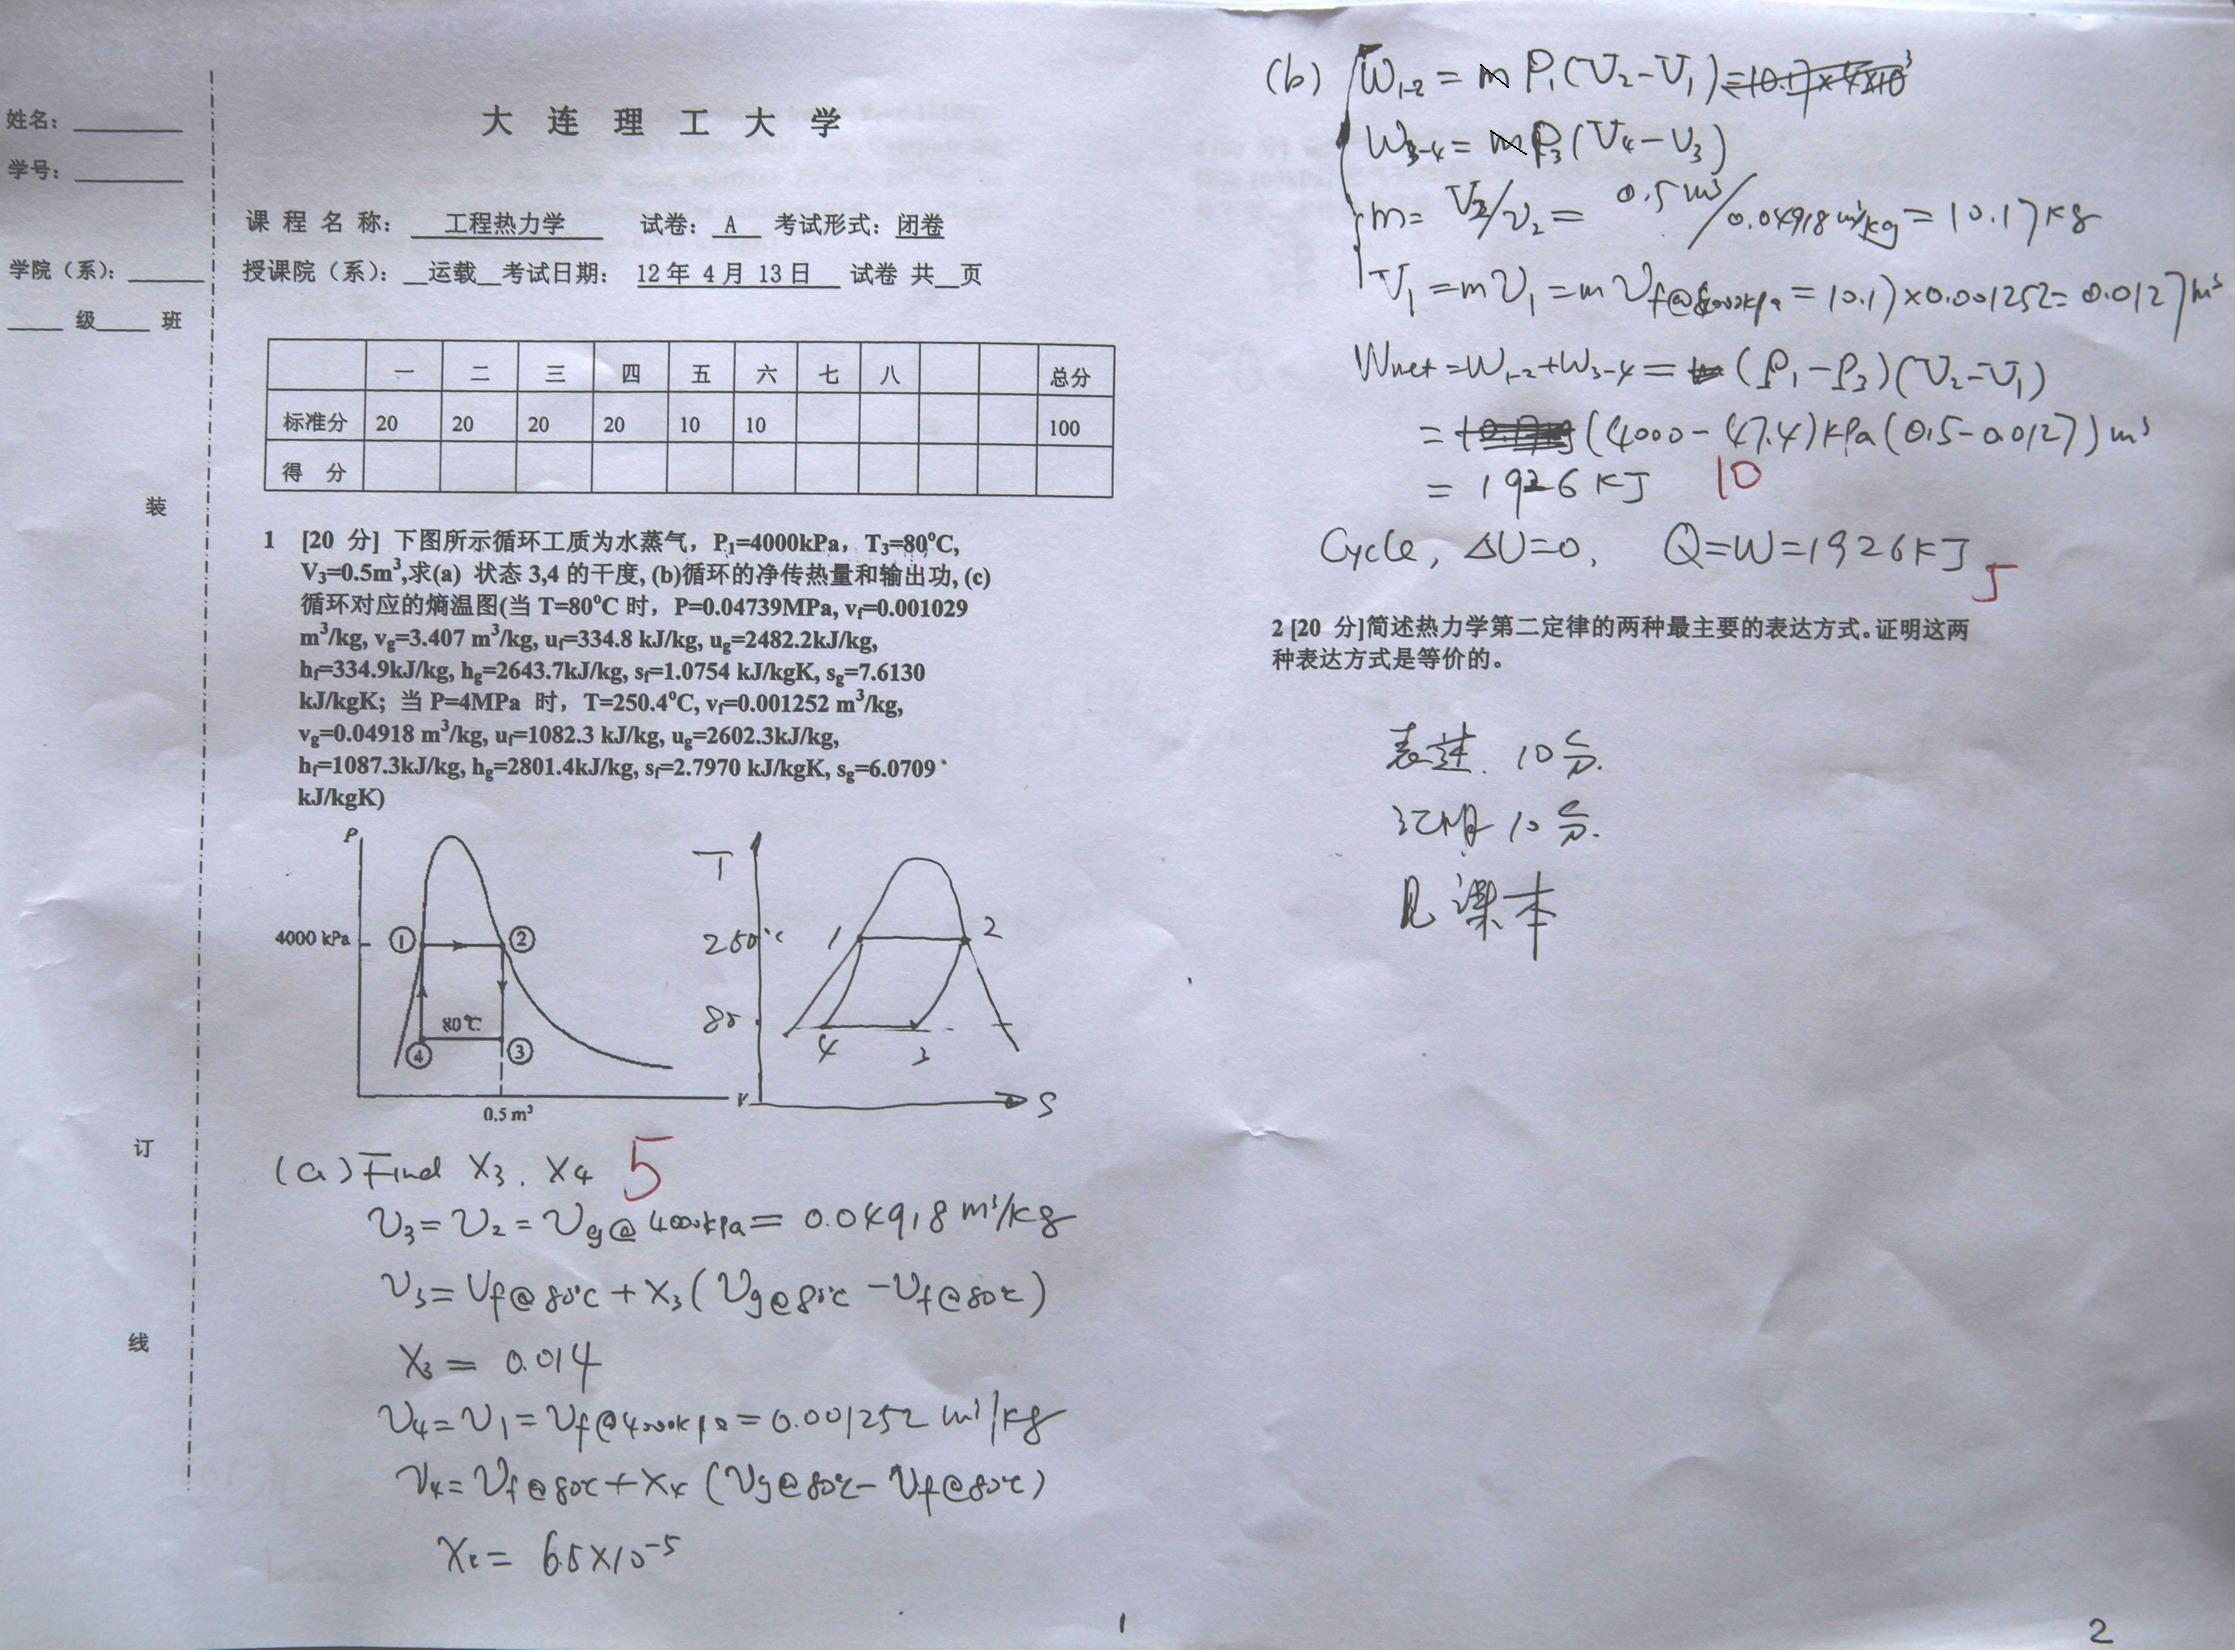 姓名：
学号：
学院（系）：
级 班
装
订
线
大 连 理 工 大 学
课 程 名 称： 工程热力学 试卷： A 考试形式：闭卷
授课院（系）： 运载 考试日期： 12年 4月 13日 试卷 共 页
一 二 三 四 五 六 七 八 总分
标准分 20 20 20 20 10 10 100
得 分
1 [20 分] 下图所示循环工质为水蒸气，P₁=4000kPa，T₃=80⁰C,
V₃=0.5m³,求(a) 状态 3,4 的干度, (b)循环的净传热量和输出功, (c)
循环对应的熵温图(当 T=80⁰C 时，P=0.04739MPa, vf=0.001029
m³/kg, vg=3.407 m³/kg, uf=334.8 kJ/kg, ug=2482.2kJ/kg,
hf=334.9kJ/kg, hg=2643.7kJ/kg, sf=1.0754 kJ/kgK, sg=7.6130
kJ/kgK; 当 P=4MPa 时，T=250.4⁰C, vf=0.001252 m³/kg,
vg=0.04918 m³/kg, uf=1082.3 kJ/kg, ug=2602.3kJ/kg,
hf=1087.3kJ/kg, hg=2801.4kJ/kg, sf=2.7970 kJ/kgK, sg=6.0709
kJ/kgK)
P
4000 kPa ① ②
80℃
④ ③
0.5 m³
V
T
250℃ 1 2
80
4 3
S
(a) Find X₃, X₄ 5
v₃ = v₂ = vg@4000kPa = 0.04918 m³/kg
v₃ = vf@80℃ + X₃ (vg@80℃ - vf@80℃)
X₃ = 0.014
v₄ = v₁ = vf@4000kPa = 0.001252 m³/kg
v₄ = vf@80℃ + X₄ (vg@80℃ - vf@80℃)
X₄ = 6.5×10⁻⁵
1
(b) W₁₋₂ = P₁(V₂-V₁)
W₃₋₄ = P₃(V₄-V₃)
m = V₂/v₂ = 0.5m³/0.04918m³/kg = 10.17kg
V₁ = mv₁ = m vf@4000kPa = 10.17×0.001252 = 0.0127m³
Wnet = W₁₋₂ + W₃₋₄ = (P₁-P₃)(V₂-V₁)
= (4000-47.4)kPa(0.5-0.0127)m³
= 1926 KJ 10
Cycle, ΔU=0, Q=W=1926KJ 5
2 [20 分]简述热力学第二定律的两种最主要的表达方式。证明这两
种表达方式是等价的。
表述 10分.
证明 10分.
见课本
2